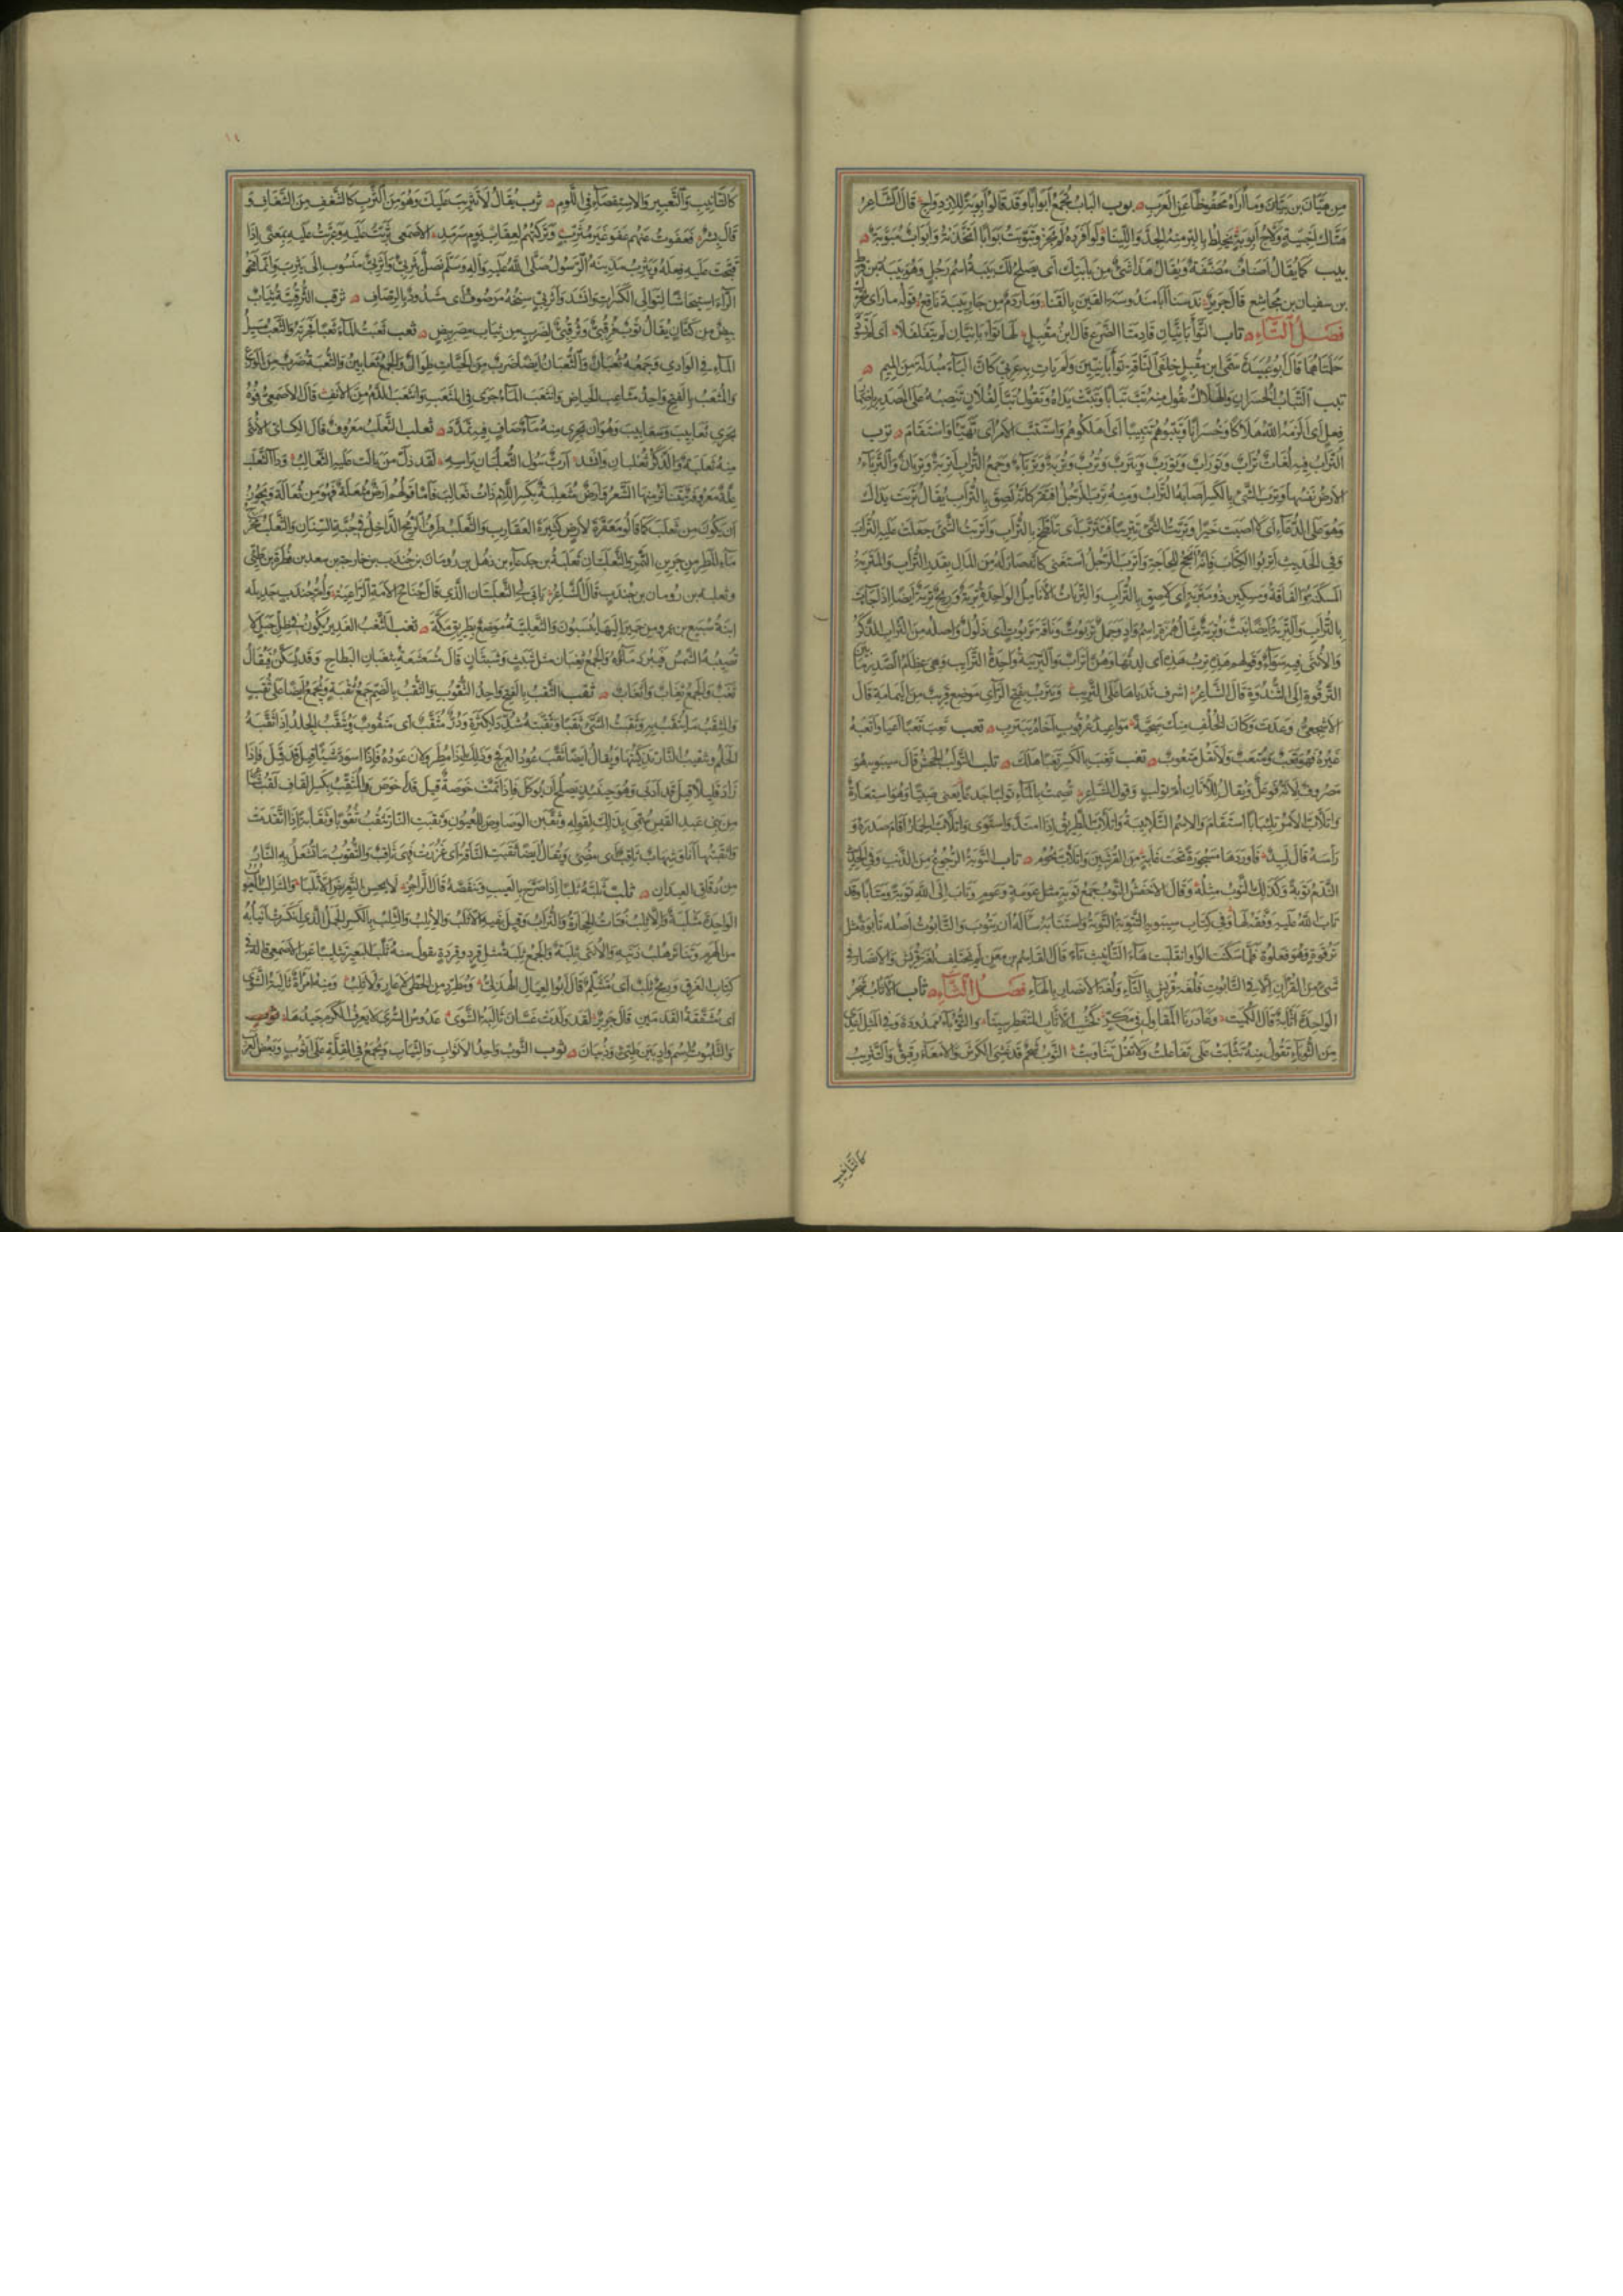 من هيّان بن بيّان وما أراه محفوظا عن العرب بوب الباب يجمع أبوابا وقد قالوا أبوبة للازدواج قال الشاعر
هتّاك أخبية ولّاج أبوبة يخلط بالبرّ منه الجدّ واللينا ولو أفرده لم يجز وتبوّبت بوّابا اتخذته وأبواب مبوّبة
بيب كما يقال أصناف مصنّفة ويقال هذا شئ من بابتك أي يصلح لك ببّة اسم رجل وهو ببّة بن قرط
بن سفيان بن مجاشع قال جرير ندسنا أبا مندوسة القين بالقنا ومار دم من جار بيبة ناقع قوله مار أي تحرّك
فصل التاء تاب التوأبانيّان قادمتا الضرع قال ابن مقبل لها توأبانيّان لم يتفلفلا أي لم تسودّ
حلمتاهما قال أبو عبيدة سمّى ابن مقبل خلفي الناقة توأبانيّين ولم يأت به عربي كأنّ الباء مبدلة من الميم
تبب التباب الخسران والهلاك تقول منه تبّ تبابا وتبّت يداه وتقول تبّا لفلان تنصبه على المصدر بإضمار
فعل أي ألزمه الله هلاكا وخسرانا وتبّبوهم تتبيبا أي أهلكوهم واستتبّ الأمر أي تهيّأ واستقام ترب
التراب فيه لغات تراب وتوراب وتورب وتيرب وترب وتربة وترباء وجمع التراب أتربة وتربان والترباء
الأرض نفسها وترب الشئ بالكسر أصابه التراب ومنه ترب الرجل افتقر كأنه لصق بالتراب يقال تربت يداك
وهو على الدعاء أي لا أصبت خيرا وترّبت الشئ تتريبا فتترّب أي تلطّخ بالتراب وأتربت الشئ جعلت عليه التراب
وفي الحديث أتربوا الكتاب فإنه أنجح للحاجة وأترب الرجل استغنى كأنه صار له من المال بقدر التراب والمتربة
المسكنة والفاقة ومسكين ذو متربة أي لاصق بالتراب والتربات الأنامل الواحدة تربة وريح تربة أيضا إذا جاءت
بالتراب والتربة أيضا نبت وتربة مثال همزة اسم واد وجمل تربوت وناقة تربوت أي ذلول وأصله من التراب للذكر
والأنثى فيه سواء وقولهم هذه ترب هذه أي لدتها وهنّ أتراب والتريبة واحدة الترائب وهي عظام الصدر ما بين
الترقوة إلى الثندوة قال الشاعر أشرف ثدياها على التريب ويترب بفتح الراء موضع قريب من اليمامة قال
الأشجعي وعدت وكان الخلف منك سجيّة مواعيد عرقوب أخاه بيترب تعب تعب تعبا أعيا وأتعبه
غيره فهو تعب ومتعب ولا تقل متعوب تغب تغب بالكسر تغبا هلك تلب التولب الجحش قال سيبويه هو
مصروف لأنه فوعل ويقال للأتان أم تولب وقول الشاعر تصمت بالماء تولبا جدعا يعني صبيّا وهو استعارة
واتلأبّ الأمر اتلئبابا استقام والاسم التلأبيبة واتلأبّ الطريق إذا امتدّ واستوى واتلأبّ الحمار أقام صدره و
رأسه قال لبيد فأوردها مسجورة تحت غابة من القرنتين واتلأبّ يحوم تاب التوبة الرجوع من الذنب وفي الحديث
الندم توبة وكذلك التوب مثله وقال الأخفش التوب جمع توبة مثل عومة وعوم وتاب إلى الله توبة ومتابا وقد
تاب الله عليه وفّقه لها وفي كتاب سيبويه التتوبة التوبة واستتابه سأله أن يتوب والتابوت أصله تابوة مثل
ترقوة وهو فعلوة فلما سكنت الواو انقلبت هاء التأنيث تاء قال القاسم بن معن لم تختلف لغة قريش والأنصار في
شئ من القرآن إلا في التابوت فلغة قريش بالتاء ولغة الأنصار بالهاء فصل الثاء ثاب الأثأب شجر
الواحدة أثأبة قال الكميت وغادرنا المقاول في مكرّ كخشب الأثأب المتغطرسينا والثؤباء ممدودة وفي المثل أعدى
من الثؤباء تقول منه تثاءبت على تفاعلت ولا تقل تثاوبت الثرب شحم قد غشي الكرش والأمعاء رقيق والتثريب
كالتأنيب
كالتأنيب والتعيير والاستقصاء في اللوم ثرب يقال لا تثريب عليك وهو من الثرب كالشغف من الشغاف و
قال بشر فعفوت عنهم عفو غير مثرّب وتركتهم لعقاب يوم سرمد الأصمعي ثرّبت عليه وعرّبت عليه بمعنى إذا
قبّحت عليه فعله ويثرب مدينة الرسول صلى الله عليه وآله وسلم نصل يثربيّ وأثربيّ منسوب إلى يثرب وإنما فتحوا
الراء استيحاشا لتوالي الكسرات وأنشد وأثربيّ سنخه مرصوف أي مشدود بالرصاف ثرقب الثرقبيّة ثياب
بيض من كتان يقال ثوب ثرقبيّ وفرقبيّ لضرب من ثياب مصر بيض ثعب ثعبت الماء ثعبا فجّرته والثعب سيل
الماء في الوادي وجمعه ثعبان والثعبان أيضا ضرب من الحيّات طوال والجمع ثعابين والثعبة ضرب من الوزغ
والمثعب بالفتح واحد مثاعب الحياض وانثعب الماء جرى في المثعب وانثعب الدم من الأنف قال الأصمعي فوه
يجري ثعابيب وسعابيب وهو أن يجري منه ماء صاف فيه تمدّد ثعلب الثعلب معروف قال الكسائي الأنثى
منه ثعلبة والذكر ثعلبان وأنشد أربّ يبول الثعلبان برأسه لقد ذلّ من بالت عليه الثعالب وداء الثعلب
علّة معروفة يتناثر منها الشعر وأرض مثعلبة بكسر اللام ذات ثعالب فأما قولهم أرض مثعلة فهو من ثعالة ويجوز
أن يكون من ثعلب كما قالوا معقرة لأرض كثيرة العقارب والثعلب طرف الرمح الداخل في جبّة السنان والثعلب مخرج
ماء المطر من جرين التمر والثعلبتان ثعلبة بن جدعاء بن ذهل بن رومان بن جندب بن خارجة بن سعد بن فطرة بن طيّئ
وثعلبة بن رومان بن جندب قال الشاعر يأبى لي الثعلبتان الذي قال خباج الأمة الراعية وأم جندب جديلة
ابنة سبيع بن عمرو من حمير إليها ينسبون والثعلبيّة موضع بطريق مكة ثغب الثغب الغدير يكون في ظل جبل لا
تصيبه الشمس فيبرد ماؤه والجمع ثغبان مثل شبث وشبثان قال مشعشعة بثغبان البطاح وقد يسكّن فيقال
ثغب والجمع ثغاب وأثغاب ثقب الثقب بالفتح واحد الثقوب والثقب بالضم جمع ثقبة ويجمع أيضا على ثقب
والمثقب ما يثقب به وثقبت الشئ ثقبا وثقّبته شدّد للكثرة ودرّ مثقّب أي مثقوب وتثقّب الجلد إذا ثقّبه
الحلم وتثقيب النار تذكيتها ويقال أيضا ثقّب عود العرفج وذلك إذا مطر ولان عوده فإذا اسودّ شيئا قيل قد قمل فإذا
زاد قليلا قيل قد أدبى وهو حينئذ يصلح أن يؤكل فإذا تمّت خوصة قيل قد أخوص والمثقّب بكسر القاف لقب شاعر
من بني عبد القيس سمّي بذلك لقوله وثقّبن الوصاوص للعيون وثقبت النار تثقب ثقوبا وثقابة إذا اتقدت
وأثقبتها أنا وشهاب ثاقب أي مضئ ويقال أيضا ثقبت الناقة أي غزرت فهي ثاقب والثقوب ما تشعل به النار
من دقاق العيدان ثلب ثلبه ثلبا إذا صرّح بالعيب وتنقّصه قال الراجز لا يحسن التعريض إلا ثلبا والمثالب العيوب
الواحدة مثلبة والأثلب فتات الحجارة والتراب وقيل بفيه الأثلب والإثلب والثلب بالكسر الجمل الذي انكسرت أنيابه
من الهرم وتناثر هلب ذنبه والأنثى ثلبة والجمع ثلبة مثل قرد وقردة تقول منه ثلّب البعير تثليبا عن الأصمعي قاله في
كتاب الفرق ورمح ثلب أي متثلّم قال أبو العيال الهذلي ومطّرد من الخطّيّ لا عار ولا ثلب ومنه امرأة ثالبة الشوى
أي متشقّقة القدمين قال جرير لقد ولدت غسّان ثالبة الشوى عدوس السرى لا يعرف الكرم جيدها ثوب
والثلبوت اسم واد بين طيّئ وذبيان ثوب الثوب واحد الأثواب والثياب ويجمع في القلّة على أثوب وبعض العرب